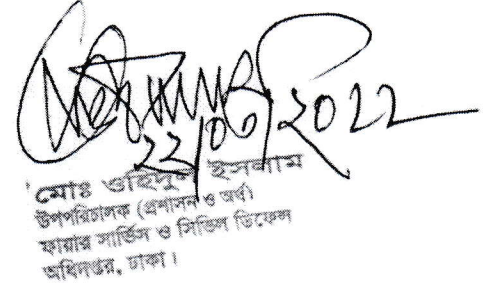 22/06/2022
মোঃ ওহিদুল ইসলাম
উপপরিচালক (প্রশাসন ও অর্থ)
ফায়ার সার্ভিস ও সিভিল ডিফেন্স
অধিদপ্তর, ঢাকা।